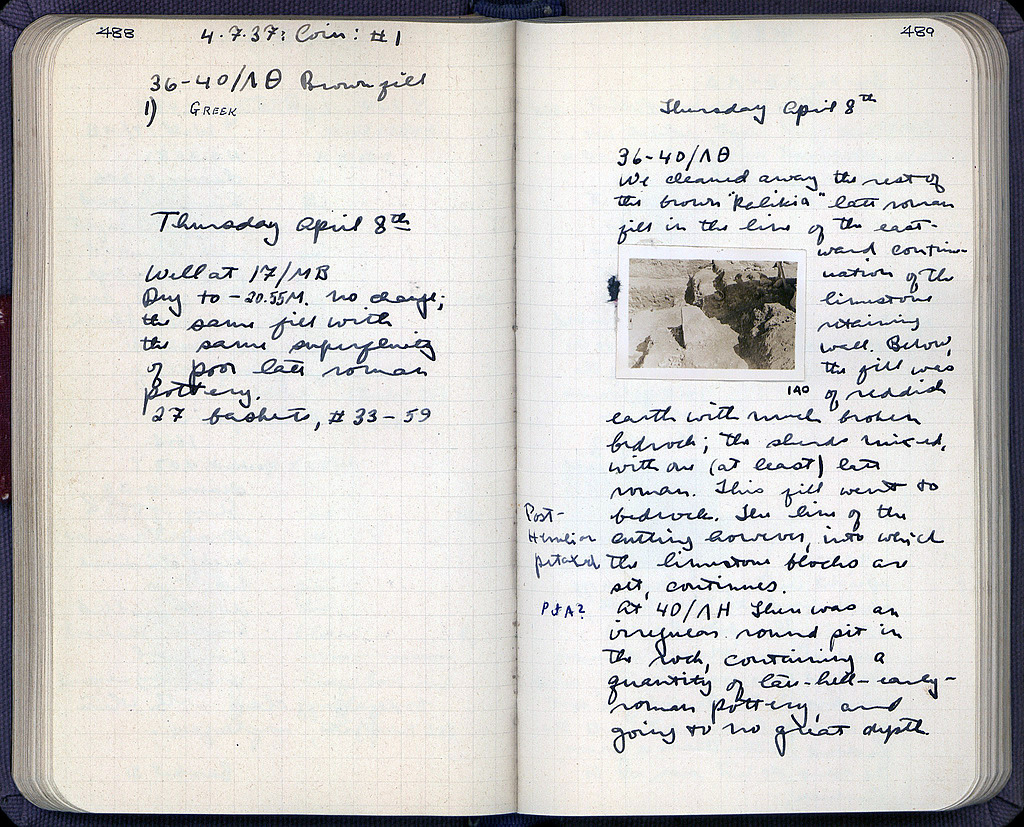 488
4.7.37: Coin: #1
36-40/ΛΘ Brown fill
1) GREEK
Thursday April 8th
Well at 17/ΜΒ
Dug to -20.55M. No change;
the same fill with
the same superfluity
of poor late roman
pottery.
27 baskets, #33-59
489
Thursday April 8th
36-40/ΛΘ
We cleaned away the rest of
the brown "Kalikia" late roman
fill in the line of the east-
ward contin-
uation of the
limestone
retaining
wall. Below,
the fill was
140 of reddish
earth with much broken
bedrock; the sherds mixed,
with one (at least) late
roman. This fill went to
bedrock. The line of the
cutting however, into which
the limestone blocks are
set, continues.
Post-
Herulian
Pit A?
At 40/ΛΗ There was an
irregular round pit in
the rock, containing a
quantity of late-hell-early-
roman pottery, and
going to no great depth.